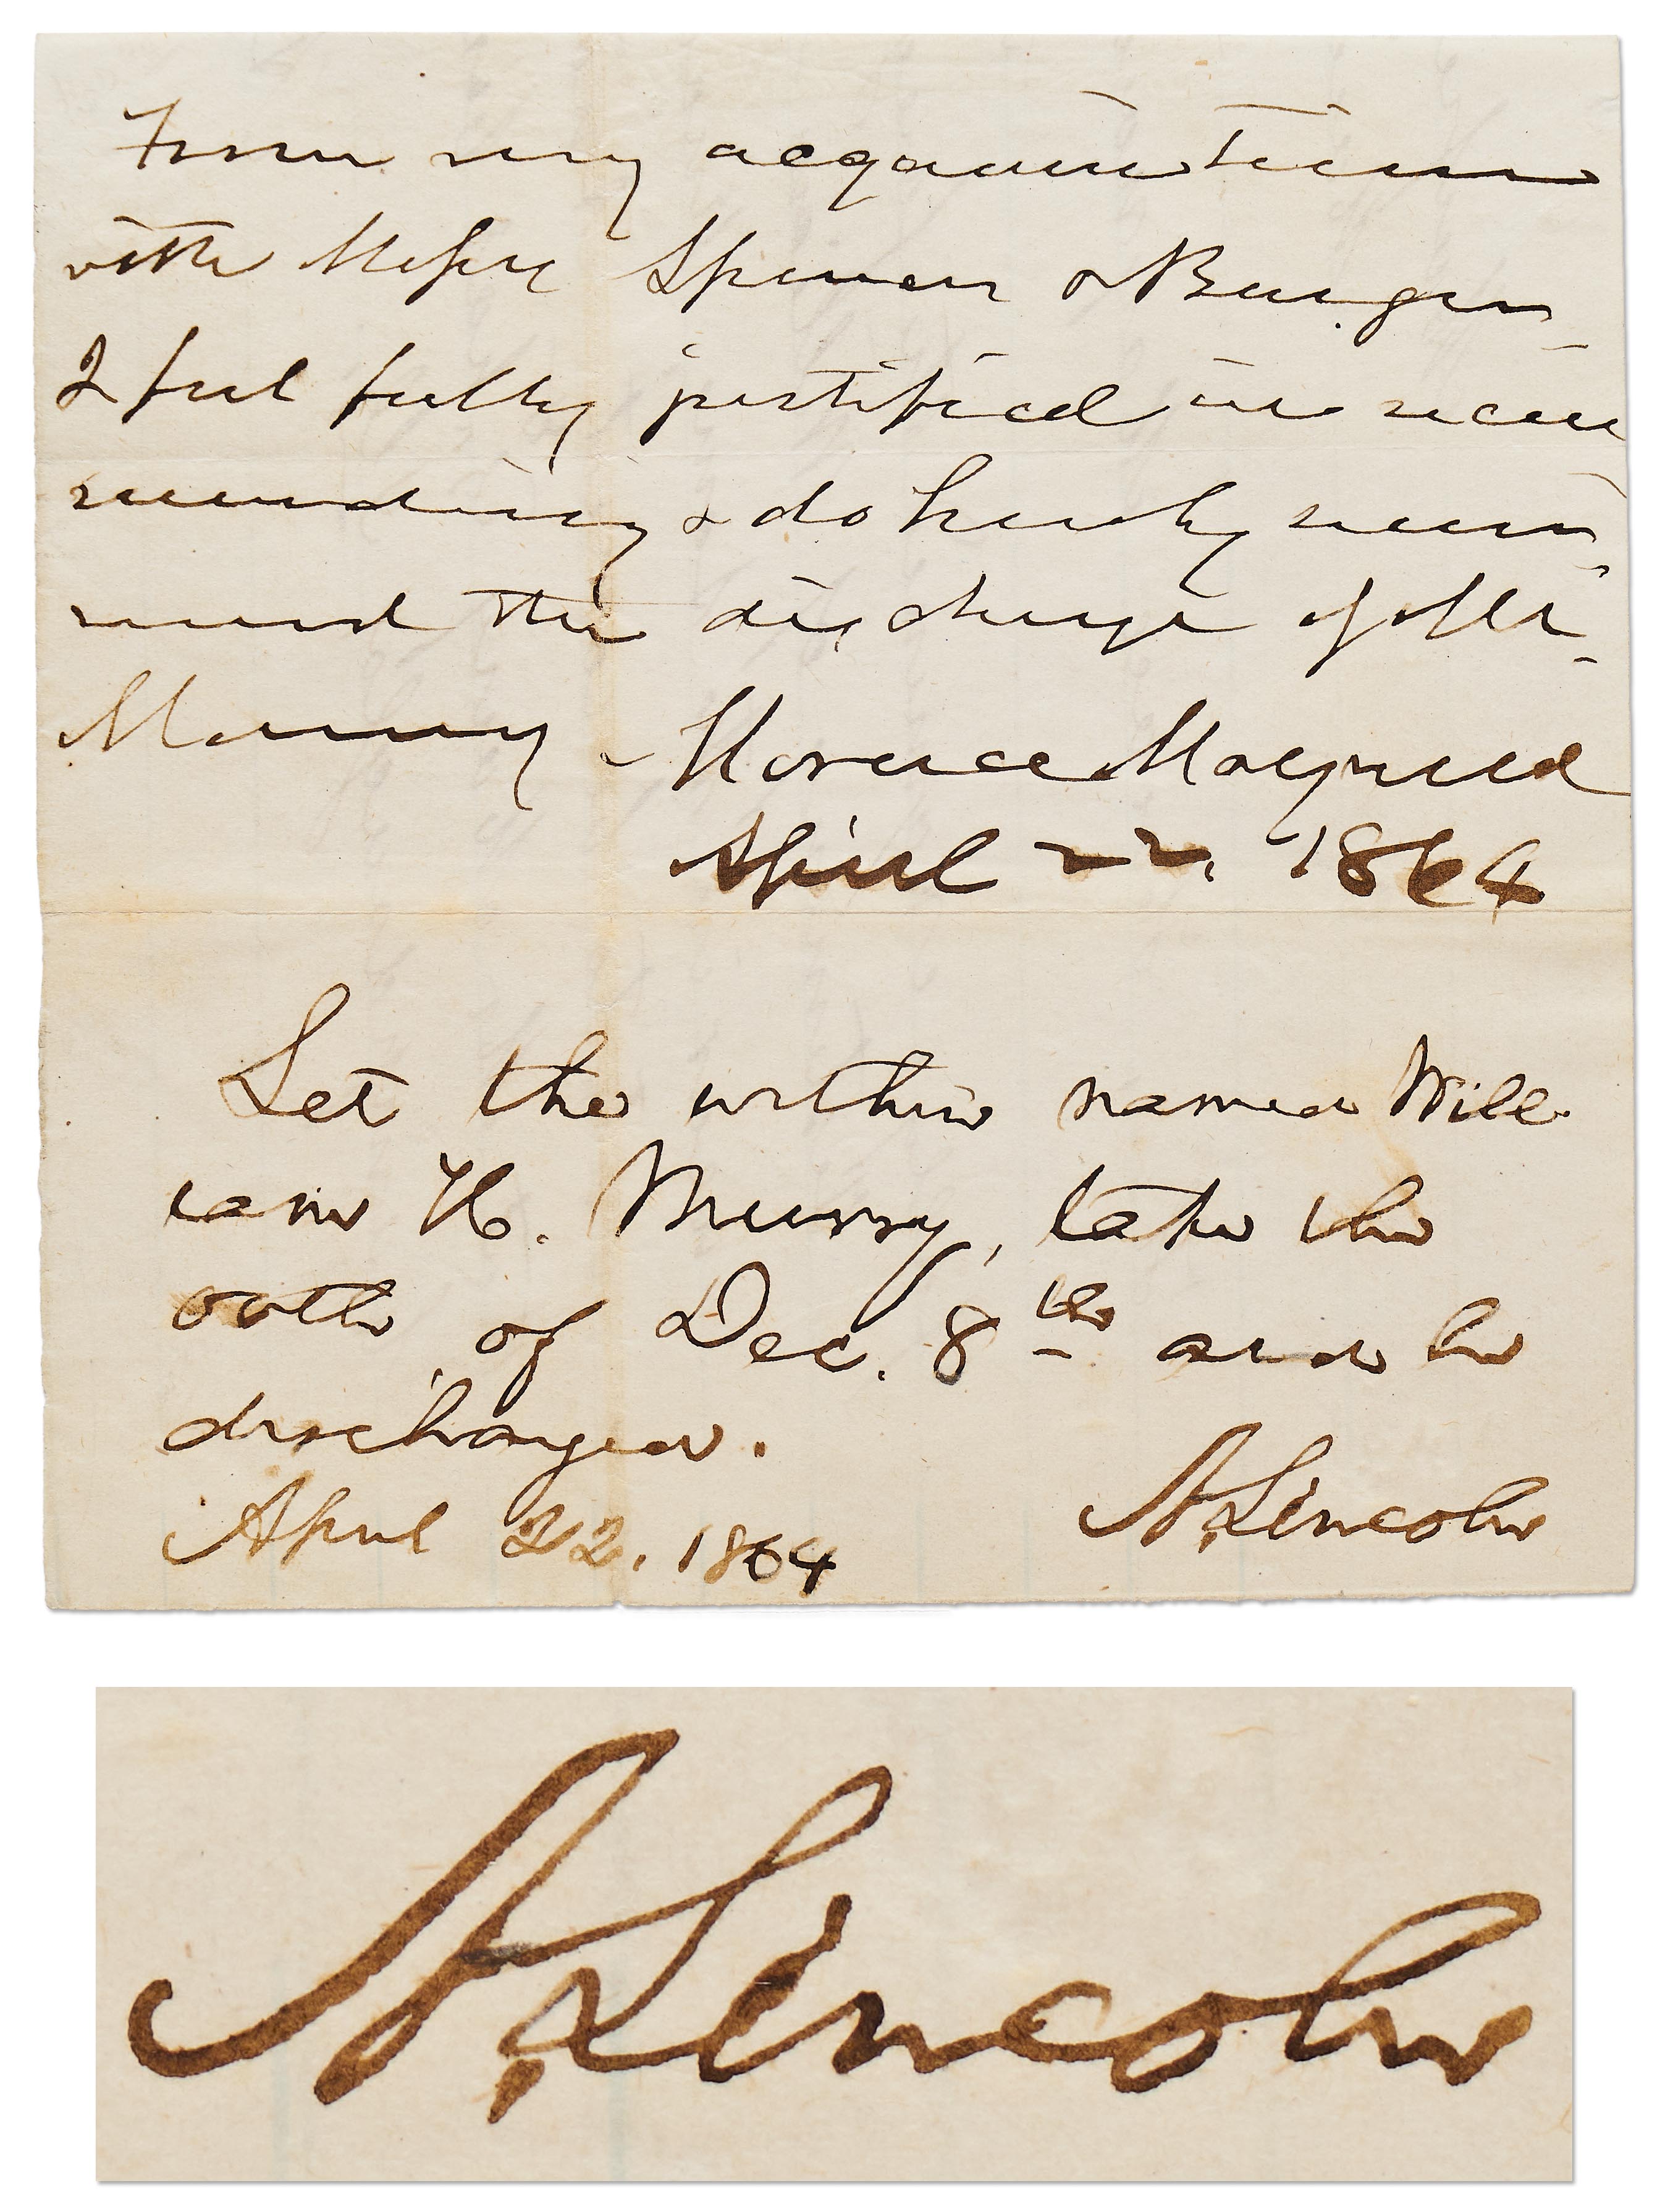 From my acquaintance
with Messrs Spencer & Burger
I feel fully justified in recom
mending & do hereby recom
mend the discharge of Mr
Murry - Horace Maynard
April 22, 1864
Let the within named Will
iam H. Murry, take the
oath of Dec. 8th and be
discharged.
April 22. 1864 A. Lincoln
A. Lincoln